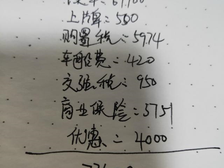 上牌:500
购置税:5974
车船费:420
交强险:950
商业保险:5751
优惠:4000